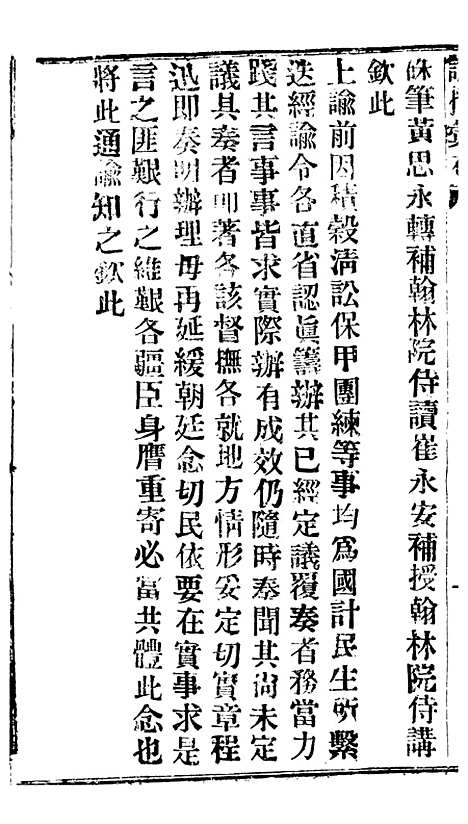 硃筆黃思永轉補翰林院侍讀崔永安補授翰林院侍講
欽此
上諭前因積穀清訟保甲團練等事均爲國計民生所繫
迭經諭令各直省認眞籌辦其已經定議覆奏者務當力
踐其言事事皆求實際辦有成效仍隨時奏聞其尙未定
議具奏者卽著各該督撫各就地方情形妥定切實章程
迅卽奏明辦理毋再延緩朝廷念切民依要在實事求是
言之匪艱行之維艱各疆臣身膺重寄必當共體此念也
將此通諭知之欽此